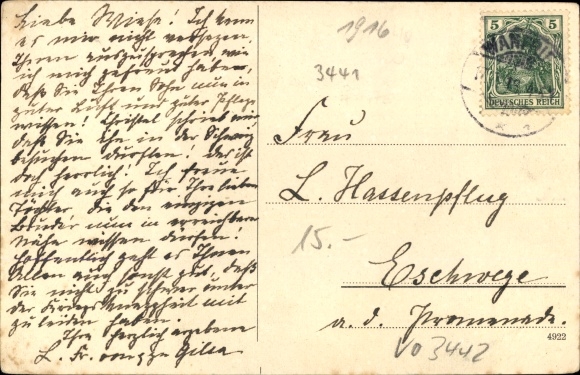 Liebe Wiese! Ich kann
es mir nicht versagen,
Ihnen auszusprechen wie
ich mich gefreut haben,
daß Sie Ihren Sohn nun in
guter Luft und guter Pflege
wissen! Christel schrieb uns
daß Sie ihn in der Schweiz
besuchen durften! das ist
doch herrlich! Ich freue
mich auch so für Ihre lieben
Töchter die den einzigen
Bruder nun in erreichbarer
Nähe wissen dürfen!
Hoffentlich geht es Ihnen
Allen auch sonst gut, daß
Sie nicht zu schwer unter
der Kriegs mit
zu leiden haben.
Ihre herzlich ergebene
L. Fr. Gilsa
1916
3441
5 5
WANFRIED
DEUTSCHES REICH
Frau
L. Hassenpflug
15.-
Eschwege
a. d. Promenade.
4922
VO 3442